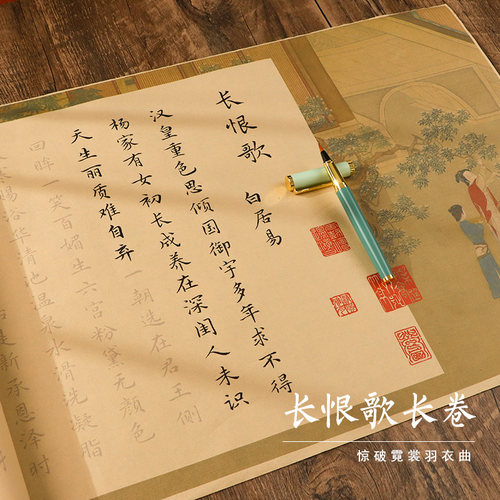 长恨歌 白居易
汉皇重色思倾国御宇多年求不得
杨家有女初长成养在深闺人未识
天生丽质难自弃一朝选在君王侧
回眸一笑百媚生六宫粉黛无颜色
赐浴华清池温泉水滑洗凝脂
是新承恩泽时
长恨歌长卷
惊破霓裳羽衣曲